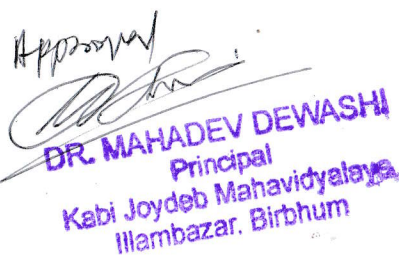 Approved
DR. MAHADEV DEWASHI
Principal
Kabi Joydeb Mahavidyalaya
Illambazar, Birbhum